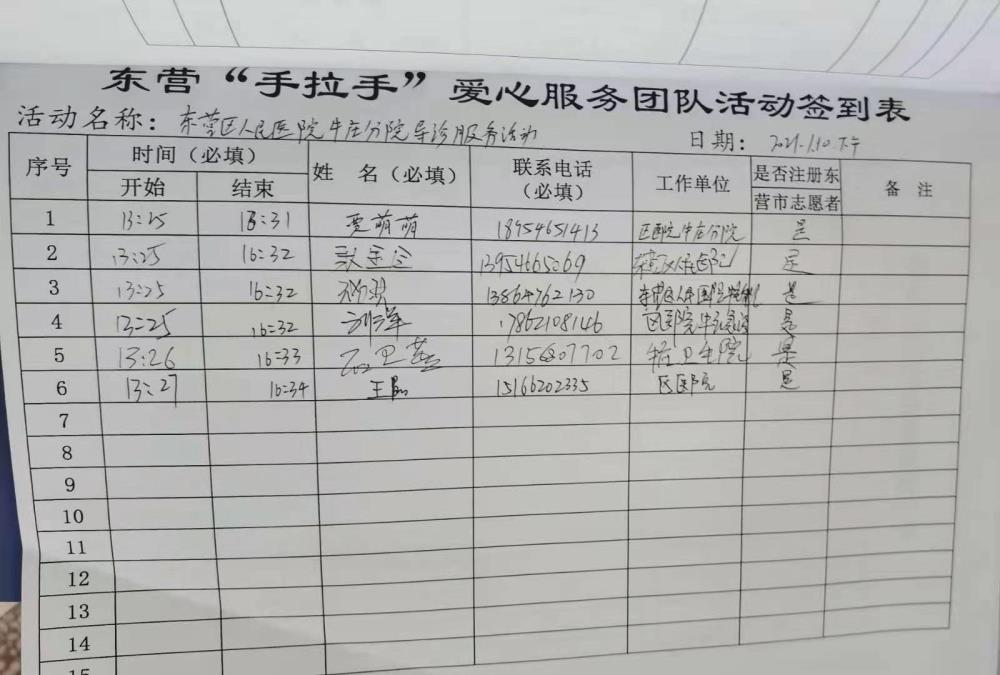 东营“手拉手”爱心服务团队活动签到表
活动名称：东营区人民医院牛庄分院导诊服务活动 日期：2021.1.10.下午
序号 时间（必填） 姓 名（必填） 联系电话（必填） 工作单位 是否注册东营市志愿者 备 注
开始 结束
1 13:25 16:31 贾萌萌 18954651413 区医院牛庄分院 是
2 13:25 16:32 13954665069 是
3 13:25 16:32 13864762130 是
4 13:25 16:32 17862108146 是
5 13:26 16:33 石卫燕 13156807702 卫生院 是
6 13:27 16:34 王晶 15166202335 区医院 是
7
8
9
10
11
12
13
14
15